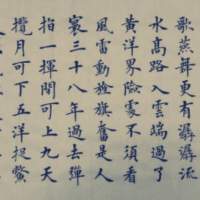 歌燕舞更有潺潺流
水髙路入雲端過了
黄洋界險處不須看
風雷動旌旗奮是人
寰三十八年過去彈
指一揮間可上九天
攬月可下五洋捉鱉